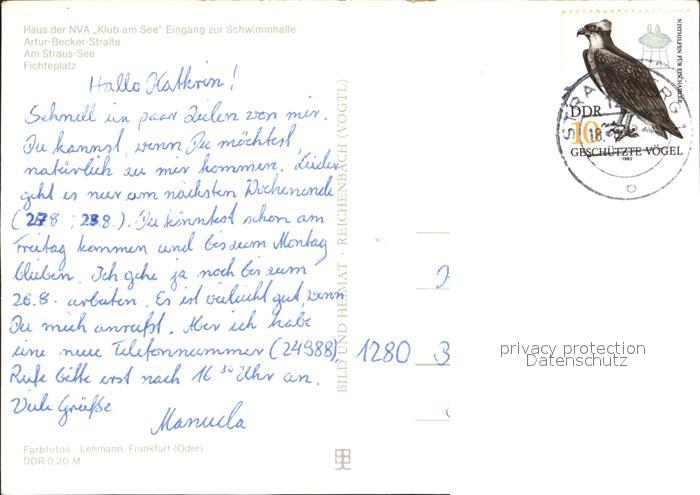 Haus der NVA „Klub am See" Eingang zur Schwimmhalle
Artur-Becker-Straße
Am Straus-See
Fichteplatz
Hallo Kathrin!
Schnell ein paar Zeilen von mir.
Du kannst, wenn Du möchtest
natürlich zu mir kommen. Leider
geht es nur am nächsten Wochenende
(27.8; 28.8.). Du könntest schon am
Freitag kommen und bis zum Montag
bleiben. Ich gehe ja noch bis zum
26.8. arbeiten. Es ist vielleicht gut, wenn
Du mich anrufst. Aber ich habe
eine neue Telefonnummer (24988).
Rufe bitte erst nach 16 30 Uhr an.
Viele Grüße
Manuela
Farbfotos: Lehmann, Frankfurt (Oder)
DDR 0,20 M
BILD UND HEIMAT · REICHENBACH (VOGTL)
1280
NISTHILFEN FÜR FISCHADLER
DDR
10
GESCHÜTZTE VÖGEL
1982
18.
privacy protection
Datenschutz